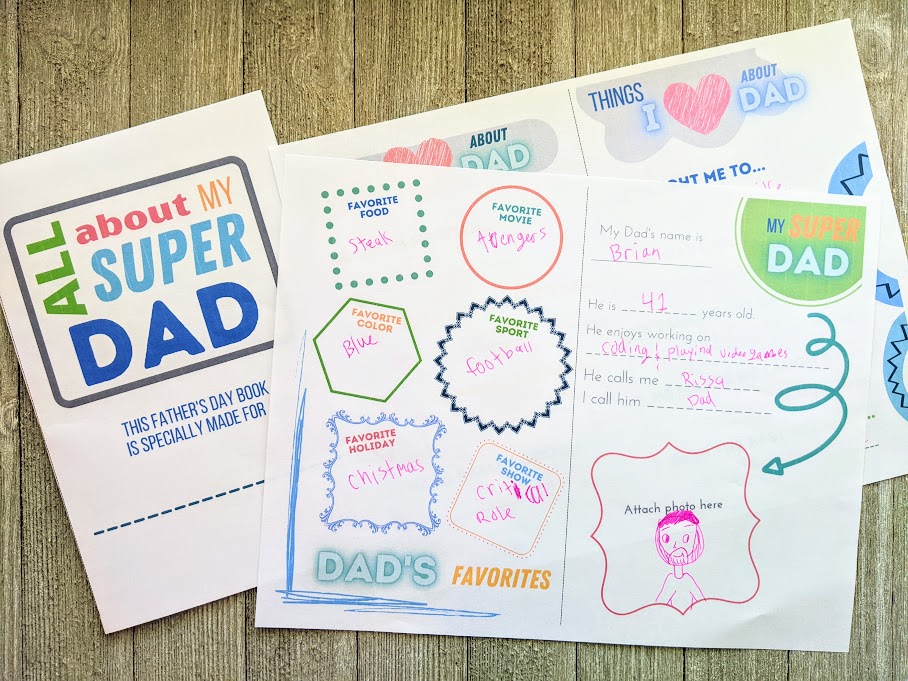 ALL
about MY
SUPER
DAD
THIS FATHER'S DAY BOOK
IS SPECIALLY MADE FOR
ABOUT
DAD
THINGS
I
ABOUT
DAD
ME TO...
FAVORITE
FOOD
Steak
FAVORITE
MOVIE
Avengers
FAVORITE
COLOR
Blue
FAVORITE
SPORT
football
FAVORITE
HOLIDAY
Chistmas
FAVORITE
SHOW
critical
Role
DAD'S FAVORITES
MY SUPER
DAD
My Dad's name is
Brian
He is 41 years old.
He enjoys working on
coding & playing videogames
He calls me Rissa
I call him Dad
Attach photo here